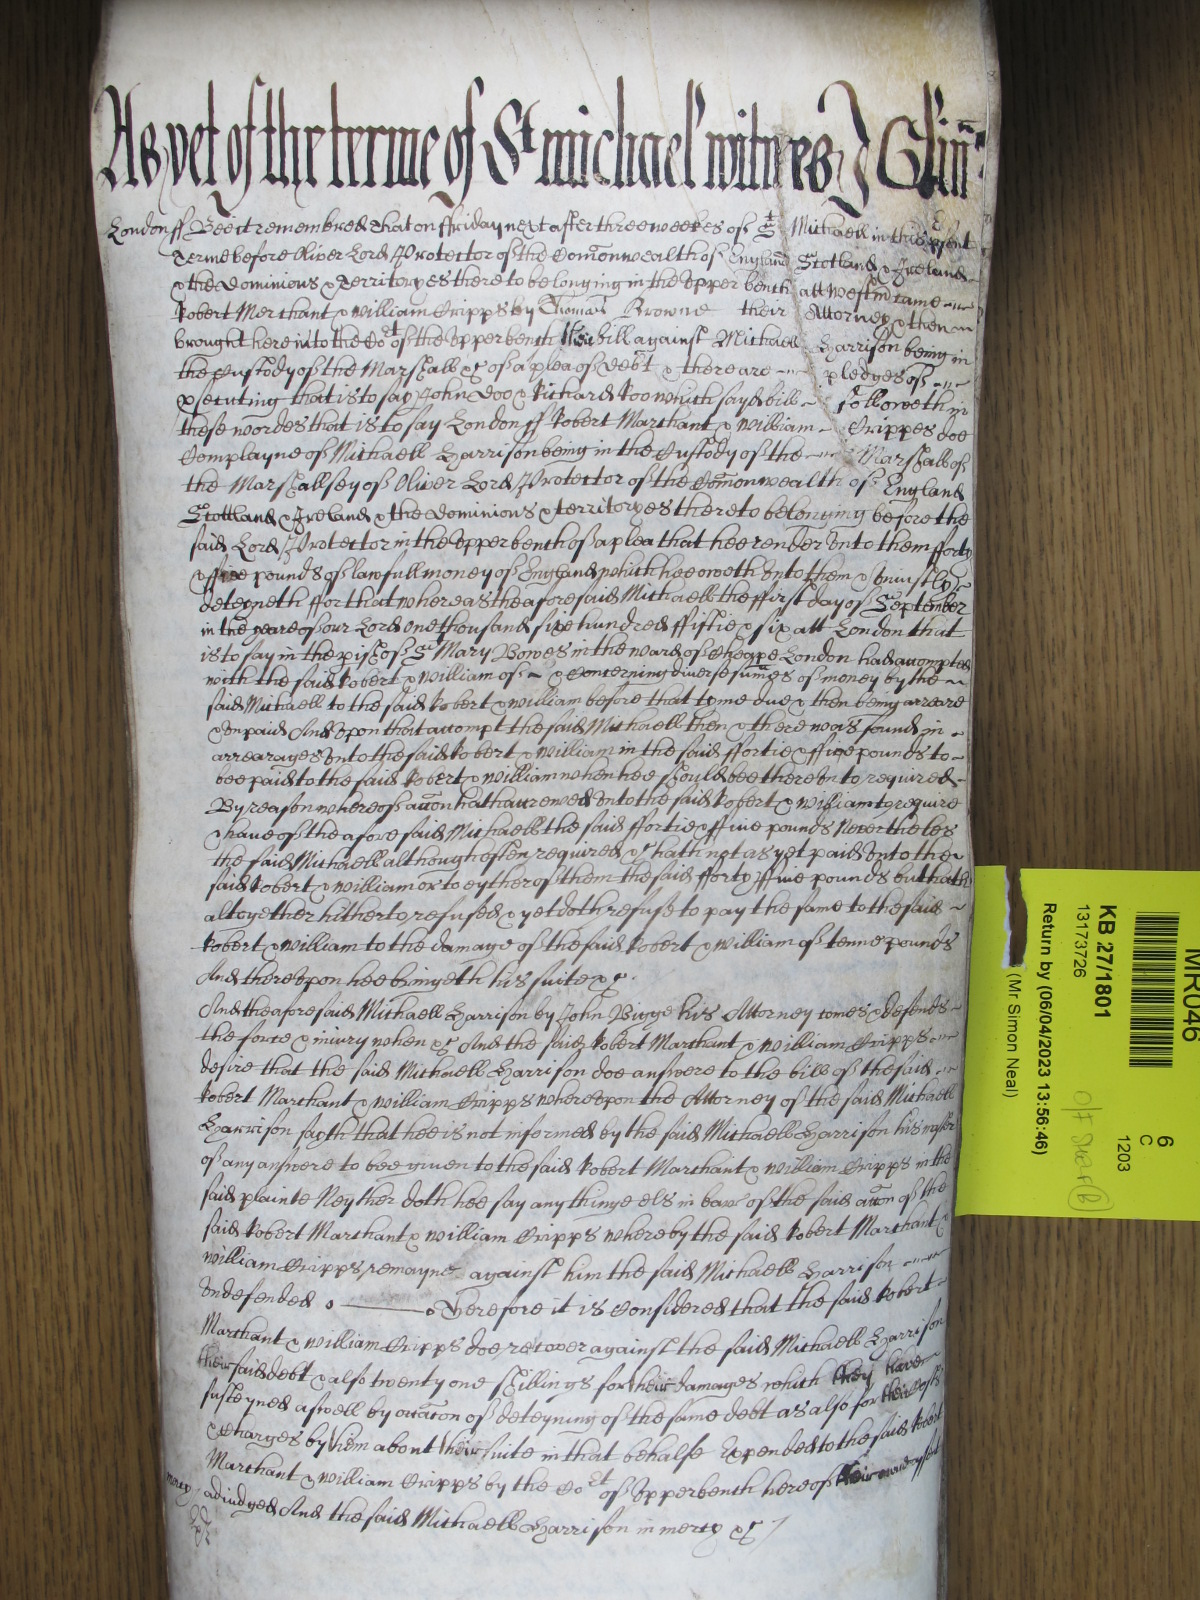 As yet of the terme of St michael witnes J Glin
London ss Bee it remembred that on ffriday next after three weekes of St Michaell in this psent
Terme before Oliver Lord Protector of the Comonwealth of England Scotland & Ireland
& the Dominions & Territoryes there to belonging in the Upper bench att Westmr came
Robert Merchant & William Cripps by Thomas Browne their Attorney & then
brought here into the Cot of the Upper bench their bill against Michaell Harrison being in
the Custody of the Marshall &c of a plea of Debt & there are pledges of
psecuting that is to say John Doo & Richard Roo which said bill followeth in
these wordes that is to say London ss Robert Marchant & William Cripps doe
Complayne of Michaell Harrison being in the Custody of the Marshall of
the Marshallsey of Oliver Lord Protector of the Comonwealth of England
Scotland & Ireland & the Dominions & territoryes thereto belonging before the
said Lord Protector in the Upper bench of a plea that hee render unto them fforty
& ffive pounds of lawfull money of England which hee oweth unto them & uniustly
deteyneth ffor that whereas the aforesaid Michaell the ffirst day of September
in the yeare of our Lord one thousand six hundred ffiftie & six att London that
is to say in the pish of St Mary Bowes in the ward of Cheape London had accompted
with the said Robert & William of & Concerning diverse sumes of money by the
said Michaell to the said Robert & William before that tyme due & then being arreare
& unpaid And upon that accompt the said Michaell then & there was found in
arrearages unto the said Robert & William in the said ffortie & ffive pounds to
bee paid to the said Robert & William when hee should bee there unto required
By reason whereof accon hath accrewed unto the said Robert & William to require
& have of the aforesaid Michaell the said ffortie & ffive pounds Neverthelesse
the said Michaell although often required &c hath not as yet paid unto the
said Robert & William or to eyther of them the said fforty & ffive pounds but hath
altogether hitherto refused & yet doth refuse to pay the same to the said
Robert & William to the damage of the said Robert & William of tenne pounds
And thereupon hee bringeth his suite &c
And the aforesaid Michaell Harrison by John Bigge his Attorney comes & defends
the force & iniury when &c And the said Robert Marchant & William Cripps
desire that the said Michaell Harrison doe answere to the bill of the said
Robert Marchant & William Cripps whereupon the Attorney of the said Michaell
Harrison sayth that hee is not informed by the said Michaell Harrison his master
of any answere to bee given to the said Robert Marchant & William Cripps in the
said plainte Neyther doth hee say any thinge els in barr of the said accon of the
said Robert Marchant & William Cripps whereby the said Robert Marchant &
William Cripps remayne against him the said Michaell Harrison
undefended Therefore it is Considered that the said Robert
Marchant & William Cripps doe recover against the said Michaell Harrison
their said debt & also twenty one shillings for their damages which they have
susteyned aswell by occacon of deteyning of the same debt as also for their costs
& charges by them about their suite in that behalfe Expended to the said Robert
Marchant & William Cripps by the Cot of Upper bench here of their
mercy adiudged And the said Michaell Harrison in mercy &c
MR046
6
C
1203
KB 27/1801
13173726
Return by (06/04/2023 13:56:46)
(Mr Simon Neal)